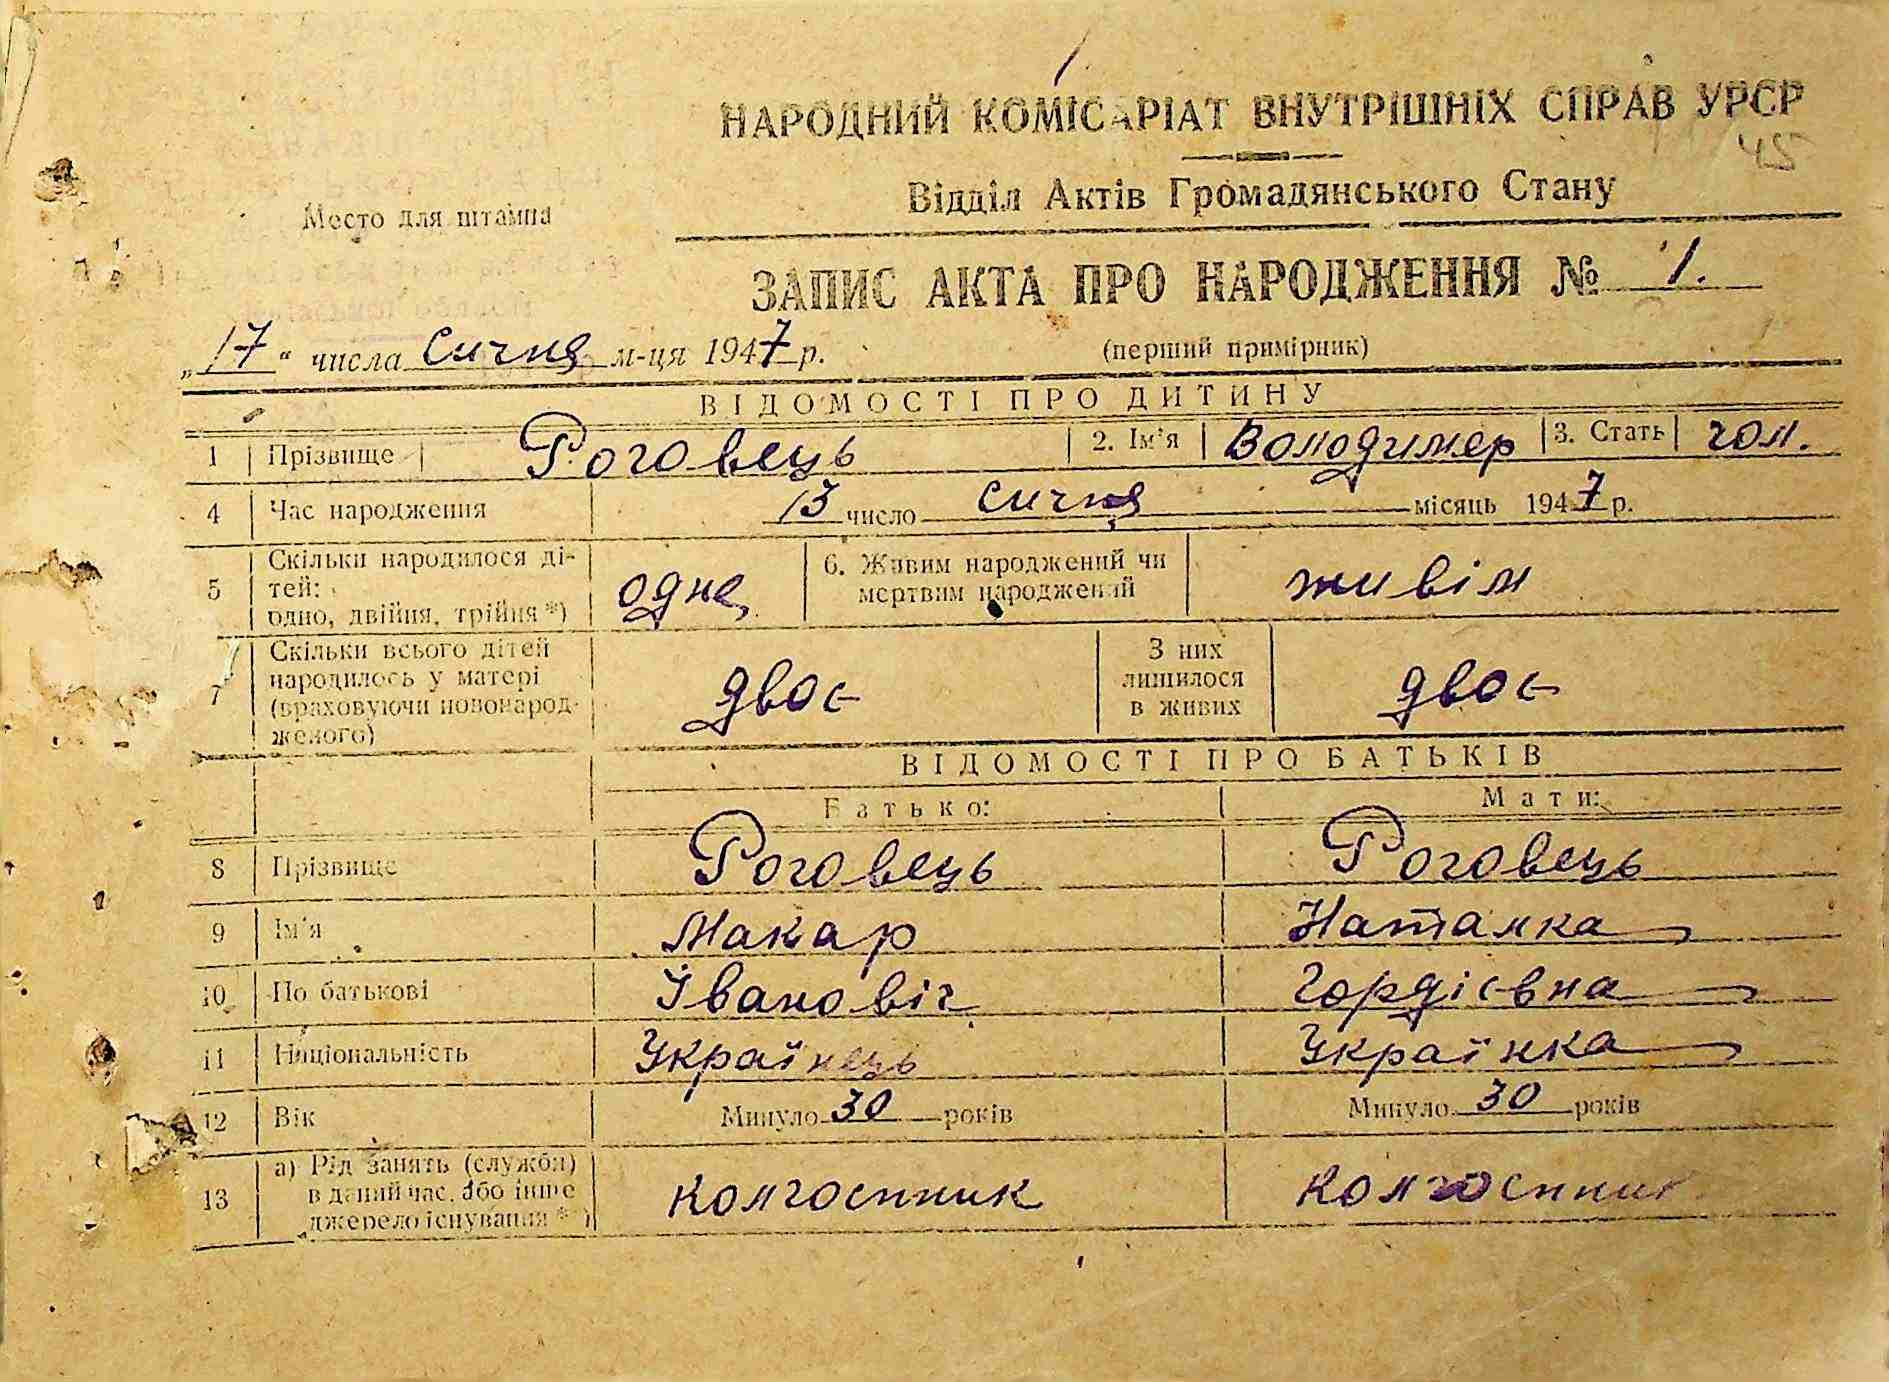 1
НАРОДНИЙ КОМІСАРІАТ ВНУТРІШНІХ СПРАВ УРСР
45
Место для штампа
Відділ Актів Громадянського Стану
ЗАПИС АКТА ПРО НАРОДЖЕННЯ № 1.
„17" числа січня м-ця 1947 р.
(перший примірник)
ВІДОМОСТІ ПРО ДИТИНУ
1 Прізвище Роговець 2. Ім'я Володимер 3. Стать чол.
4 Час народження 13 число січня місяць 1947 р.
5 Скільки народилося ді-
тей:
одно, двійня, трійня *) одне
6. Живим народжений чи
мертвим народжений живім
7 Скільки всього дітей
народилось у матері
(враховуючи новонарод-
женого) двоє
З них
лишилося
в живих двоє
ВІДОМОСТІ ПРО БАТЬКІВ
Батько: Мати:
8 Прізвище Роговець Роговець
9 Ім'я Макар Наталка
10 По батькові Івановіч Гордієвна
11 Національність Українець Українка
12 Вік Минуло 30 років Минуло 30 років
13 а) Рід занять (служби)
в даний час, або інше
джерело існування *) колгоспник колгоспник